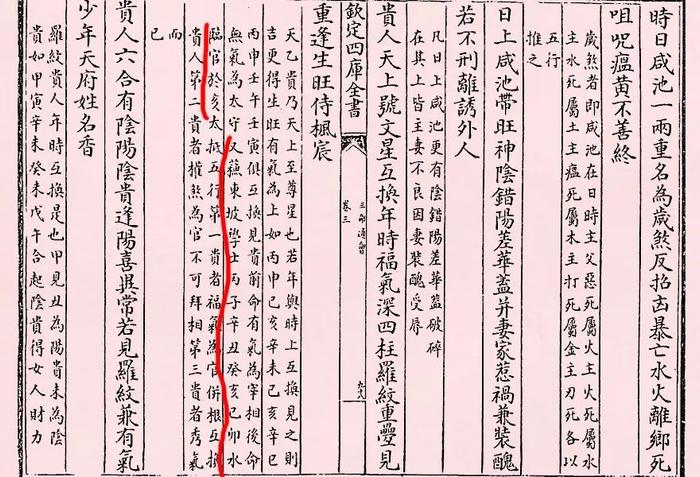 時日咸池一兩重名為歲煞反招㐫暴亡水火離鄉死
咀呪瘟黄不善終
歲煞者即咸池在日時主父惡死屬火主火死屬水
主水死屬土主瘟死屬木主打死屬金主刀死各以
五行
推之
日上咸池帶旺神陰錯陽差華蓋并妻家惹禍兼裝醜
若不刑離誘外人
凡日上咸池更有陰錯陽差華蓋破碎
在其上皆主妻不良因妻裝醜受辱
貴人天上號文星互換年時福氣深四柱羅紋重疊見
欽定四庫全書
三命通會
卷三
重逢生旺侍楓宸
天乙貴乃天上至尊星也若年與時上互換見之則
吉更得生旺有氣為上如丙申己亥辛未己亥辛巳
丙申壬午壬寅俱互換見貴前命有氣為宰相後命
無氣為太守又蘓東坡學士丙子辛丑癸亥己卯水
臨官於亥大抵五行第一貴者福氣為官併根互換
貴人第二貴者權煞為官不可拜相第三貴者秀氣
而
已
貴人六合有陰陽陰貴逢陽喜異常若見羅紋兼有氣
少年天府姓名香
羅紋貴人年時互換是也甲見丑為陽貴未為陰
貴如甲寅辛未癸未戊午合起陰貴得女人財力